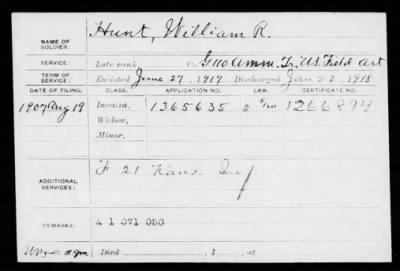 NAME OF SOLDIER: Hunt, William R.
SERVICE: Late rank, Co. G 110 Amm. Tr. U.S. Field Art
TERM OF SERVICE: Enlisted June 27, 1917, Discharged Jan 22, 1918
DATE OF FILING. CLASS. APPLICATION NO. LAW. CERTIFICATE NO.
1907 Aug 19 Invalid, 1365635 1266894
Widow,
Minor,
ADDITIONAL SERVICES: F 21 Kans. Inf.
REMARKS: 1 071 050
Died , 1 , at